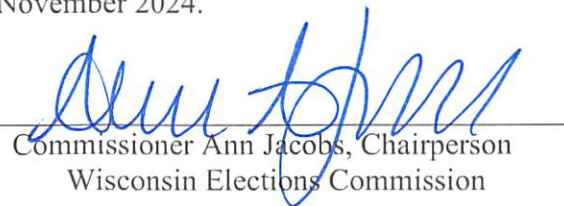 November 2024.
Commissioner Ann Jacobs, Chairperson
Wisconsin Elections Commission